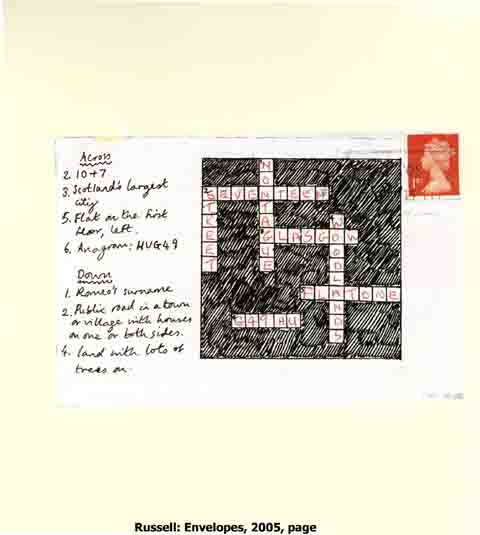 Across
2. 10+7
3. Scotland's largest
city
5. Flat on the first
floor, left.
6. Anagram: HUG49
Down
1. Romeo's surname
2. Public road in a town
or village with houses
on one or both sides.
4. land with lots of
trees on.
MONTAGUE
SEVENTEEN
STREET
GLASGOW
WOODLANDS
FLATONE
G49HU
1st
Russell: Envelopes, 2005, page